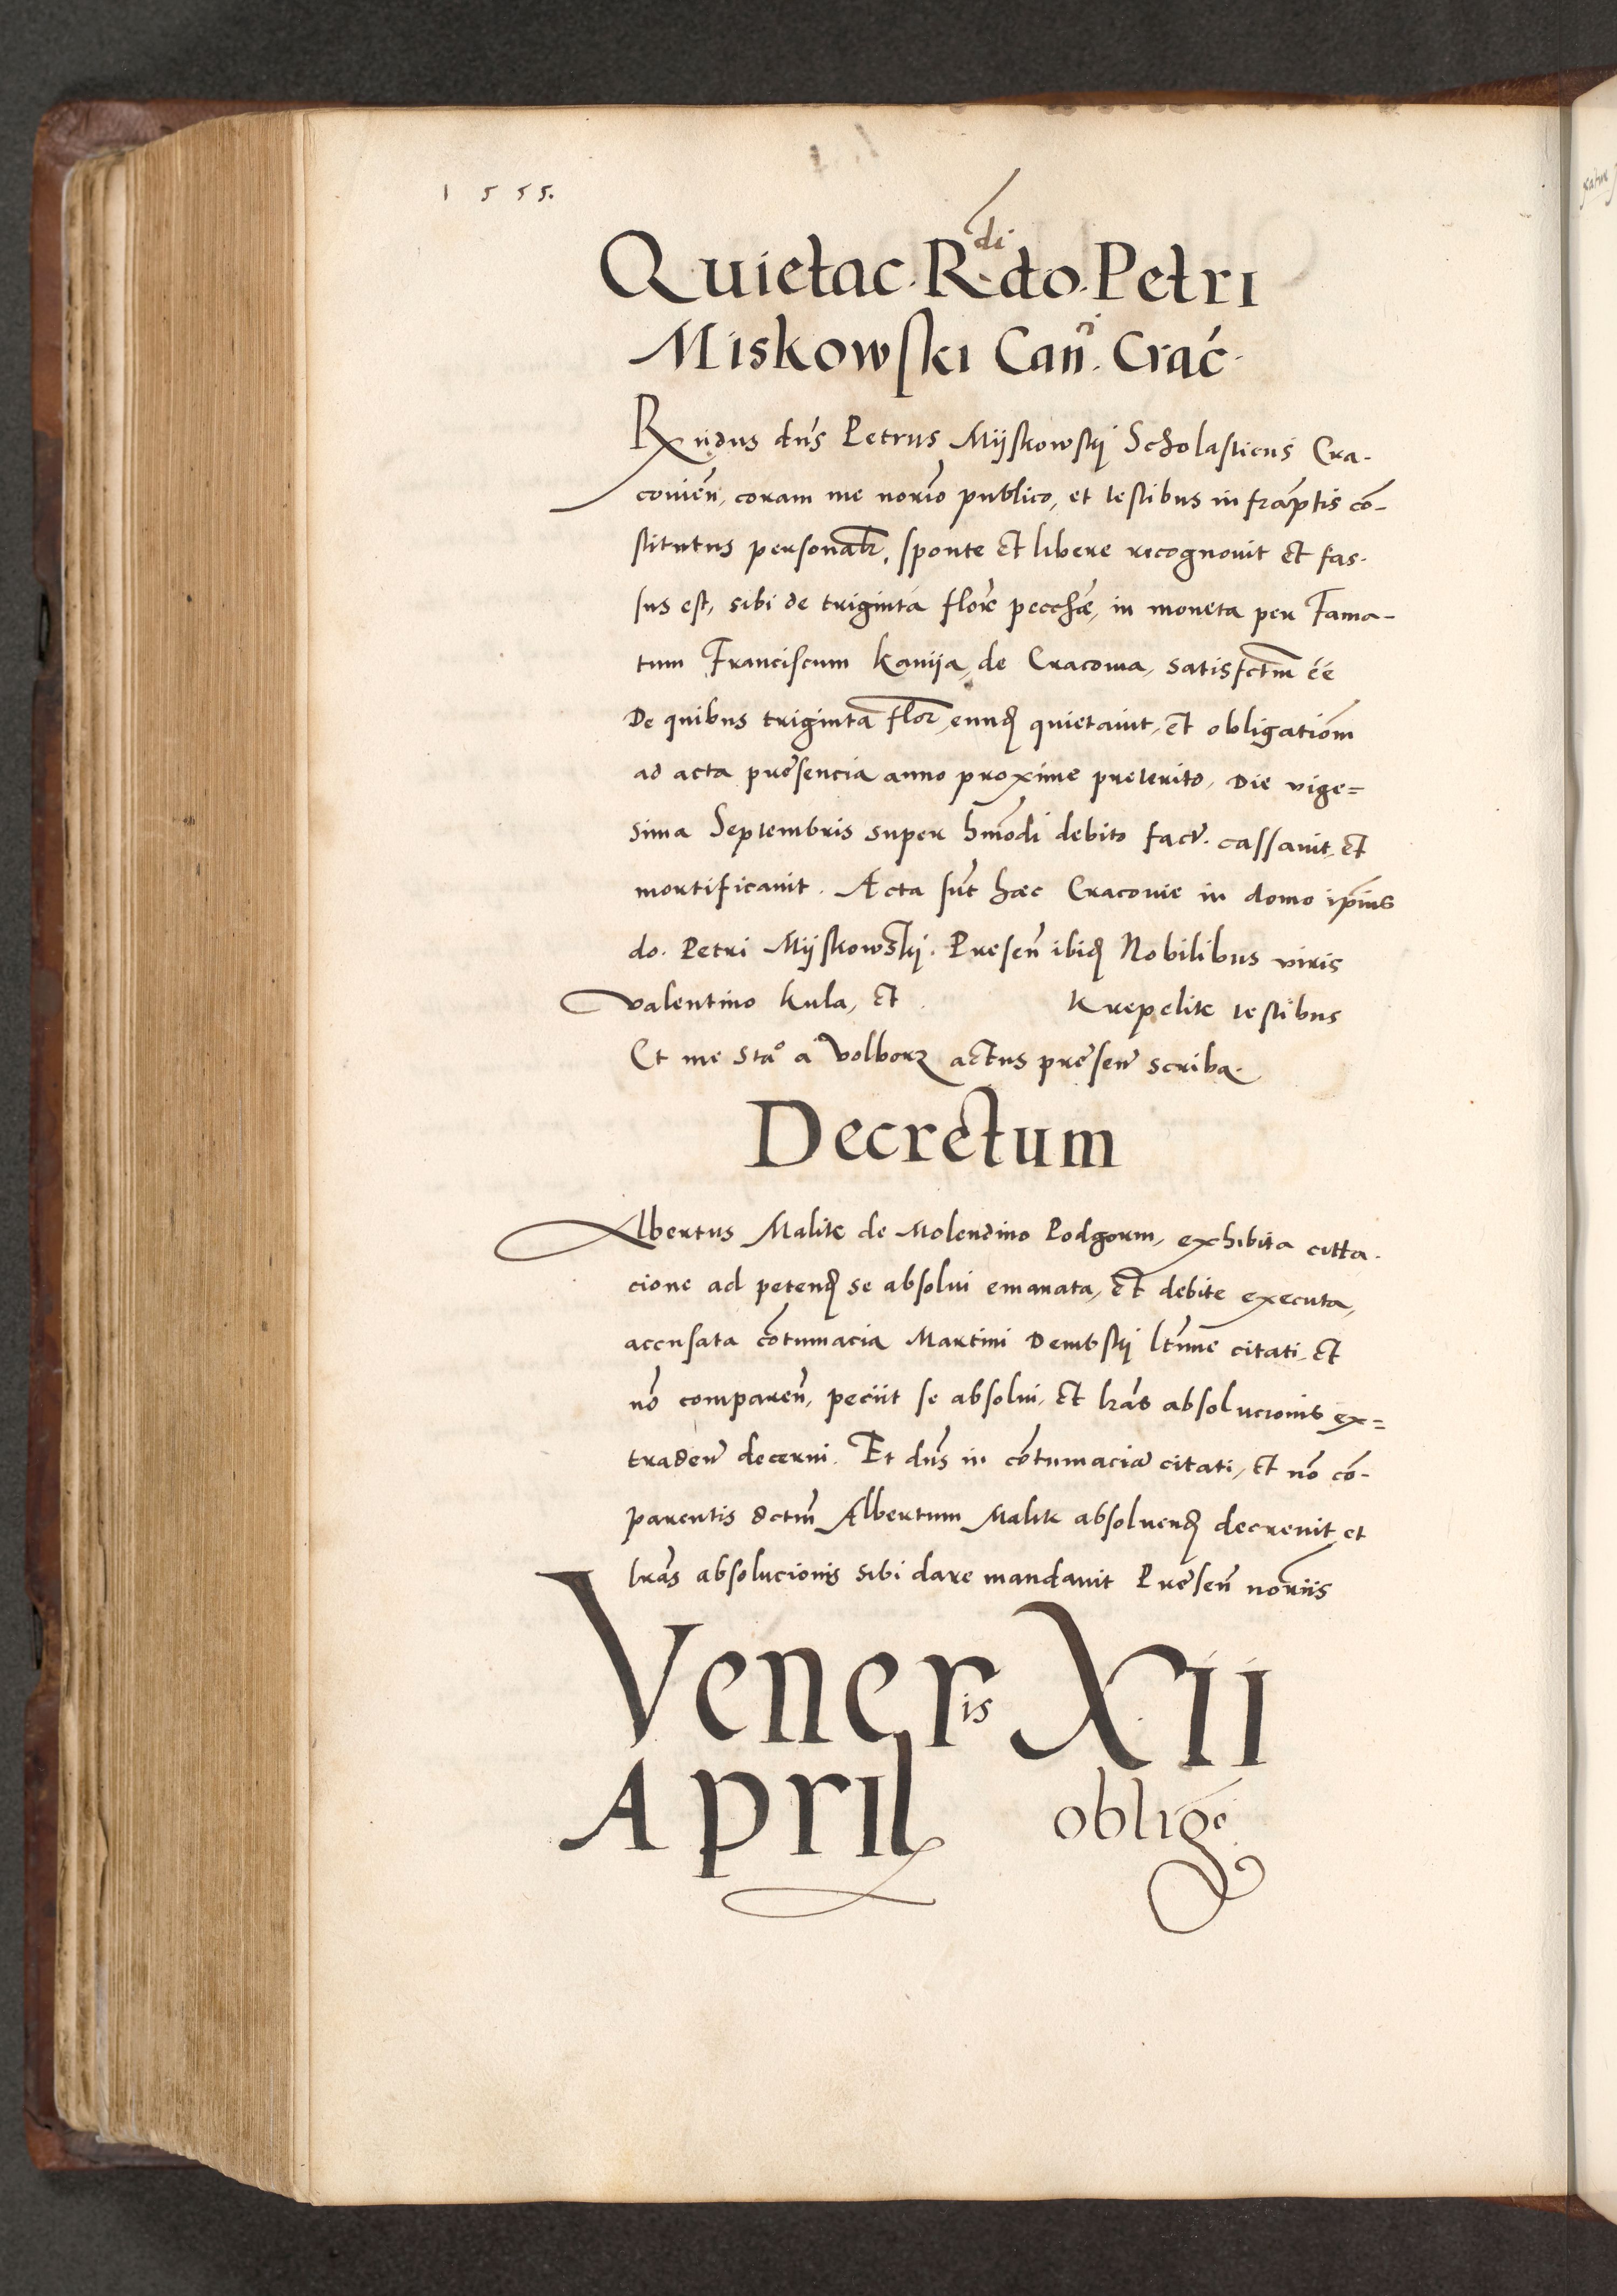 1 5 5 5.
Quietac. R.di do. Petri
Miskowski Cań. Crać.
Rńdus dńs Petrus Mijskowskij Scholasticus Cra-
covień, coram me norio publico, et testibus infraptis cō-
stitutus personalr, sponte et libere recognovit et fas-
sus est, sibi de triginta flore pecchæ, in moneta per Fama-
tum Franciscum Kanija, de Cracovia, satisfctm éé
De quibus triginta flor, eundȝ quietavit, et obligatiōm
ad acta presencia anno proxime preterito, Die vige=
sima Septembris super hmōdi debito fact. cassavit, et
mortificavit. Acta sūt hæc Cracovie in domo ipsius
do. Petri Mijskowskij. Preseń ibidȝ Nobilibus viris
Valentino Kula, et Krepelik testibus
Et me Sta° a Volborz actus presen scriba.
Decretum
Albertus Malik de Molendino Podgorni, exhibita citta-
cione ad petendȝ se absolui emanata, et debite executa,
accusata cōtumacia Martini Dembskij ltīme citati, et
nō compareń, peciit se absolui, et lrās absolucionis ex=
traden decerni. Et dńs in cōtumaciā citati, et nō cō-
parentis dctm Albertum Malik absoluendȝ decrevit et
lrās absolucionis sibi dare mandavit Preseń noriis
Veneris XII
April oblig.